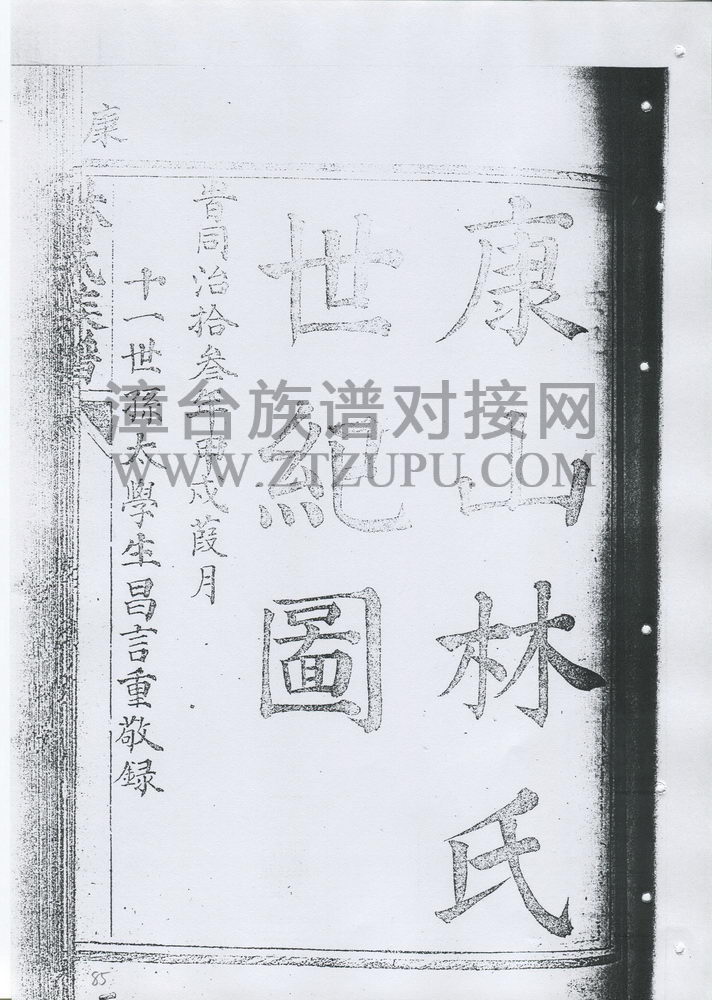 康山林氏
世紀圖
旹同治拾叁年甲戌葭月
十一世孫太學生昌言重敬録
林氏族譜
康
漳台族谱对接网
WWW.ZTZUPU.COM
85